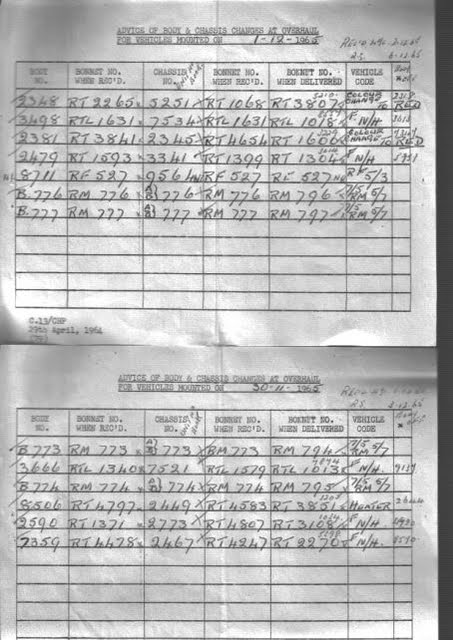 ADVICE OF BODY & CHASSIS CHANGES AT OVERHAUL
FOR VEHICLES MOUNTED ON 1-12-1965
BODY NO. BONNET NO. WHEN REC'D. CHASSIS NO. BONNET NO. WHEN REC'D. BONNET NO. WHEN DELIVERED VEHICLE CODE
2348 RT 2265 5251 RT 1068 RT 3807 COLOUR CHANGE TO RED
3498 RTL 1631 7534 RTL 1631 RTL 1018 F N/H
2381 RT 3841 2345 RT 4654 RT 1606 COLOUR CHANGE TO RED
2479 RT 1593 3341 RT 1399 RT 1304 F N/H
8711 RF 527 9564 RF 527 RF 527 RF 5/3
B.776 RM 776 A) B) 776 RM 776 RM 796 7/5 5/7 RM 9/7
B.777 RM 777 A) B) 777 RM 777 RM 797 7/5 RM 9/7
C.13/CHP
29th April, 1964
ADVICE OF BODY & CHASSIS CHANGES AT OVERHAUL
FOR VEHICLES MOUNTED ON 30-11-1965
BODY NO. BONNET NO. WHEN REC'D. CHASSIS NO. BONNET NO. WHEN REC'D. BONNET NO. WHEN DELIVERED VEHICLE CODE
B.773 RM 773 A) B) 773 RM 773 RM 794 7/5 5/7 RM 9/7
3666 RTL 1340 7521 RTL 1579 RTL 1013 F N/H.
B.774 RM 774 A) B) 774 RM 774 RM 795 7/5 5/7 RM 9/7
8506 RT 4797 2449 RT 4583 RT 3851 HEATER
2590 RT 1371 2773 RT 4807 RT 3108 F N/H.
7359 RT 4478 2467 RT 4247 RT 2270 F N/H.